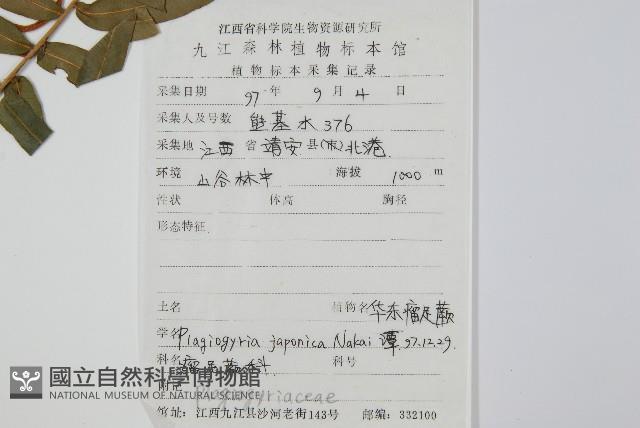 江西省科学院生物资源研究所
九江森林植物标本馆
植物标本采集记录
采集日期 97 年 9 月 4 日
采集人及号数 熊基水 376
采集地 江西 省 靖安 县(市) 北港
环境 山谷林中 海拔 1000 m
性状 体高 胸径
形态特征
土名 植物名 华东瘤足蕨
学名 Plagiogyria japonica Nakai 谭 97.12.29.
科名 瘤足蕨科 科号
附记 Plagiogyriaceae
馆址: 江西九江县沙河老街143号 邮编: 332100
國立自然科學博物館
NATIONAL MUSEUM OF NATURAL SCIENCE